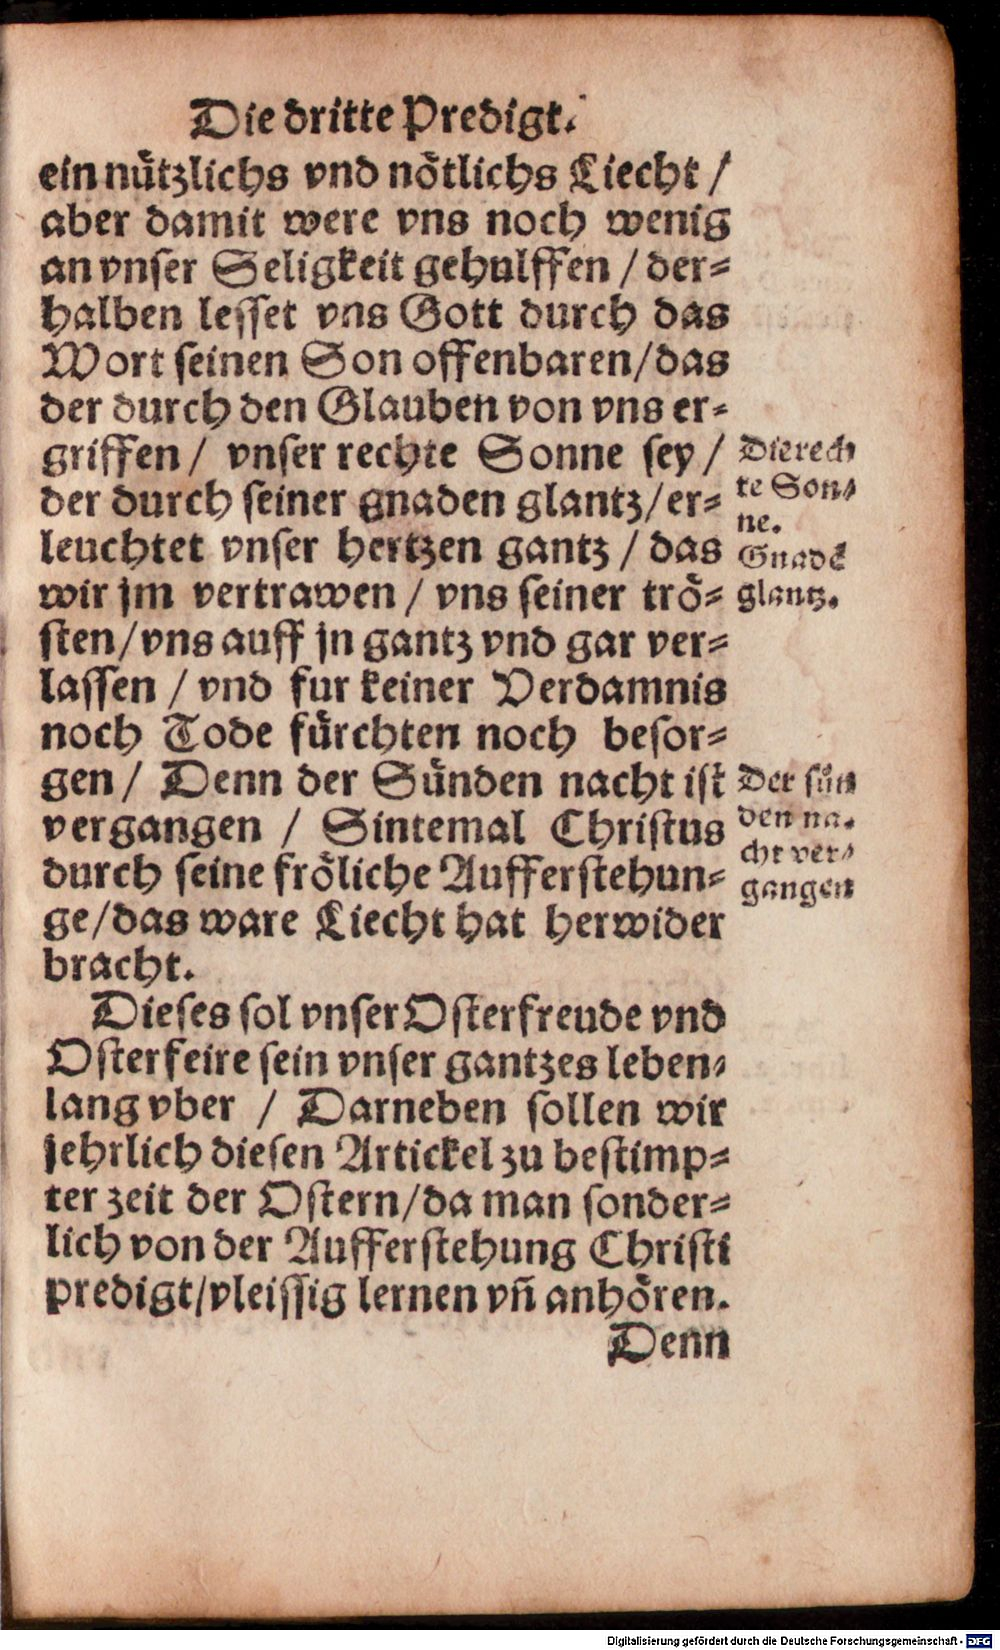 Die dritte Predigt.
ein nützlichs vnd nötlichs Liecht /
aber damit were vns noch wenig
an vnser Seligkeit gehulffen / der-
halben lesset vns Gott durch das
Wort seinen Son offenbaren/das
der durch den Glauben von vns er-
griffen / vnser rechte Sonne sey /
der durch seiner gnaden glantz/er-
leuchtet vnser hertzen gantz / das
wir jm vertrawen / vns seiner trö-
sten/vns auff jn gantz vnd gar ver-
lassen / vnd fur keiner Verdamnis
noch Tode fürchten noch besor-
gen / Denn der Sünden nacht ist
vergangen / Sintemal Christus
durch seine fröliche Aufferstehun-
ge/das ware Liecht hat herwider
bracht.
Dieses sol vnser Osterfreude vnd
Osterfeire sein vnser gantzes leben-
lang vber / Darneben sollen wir
jehrlich diesen Artickel zu bestimp-
ter zeit der Ostern/da man sonder-
lich von der Aufferstehung Christi
predigt/vleissig lernen vñ anhören.
Denn
Die rech
te Son-
ne.
Gnadē
glantz.
Der sün
den na-
cht ver-
gangen
Digitalisierung gefördert durch die Deutsche Forschungsgemeinschaft - DFG